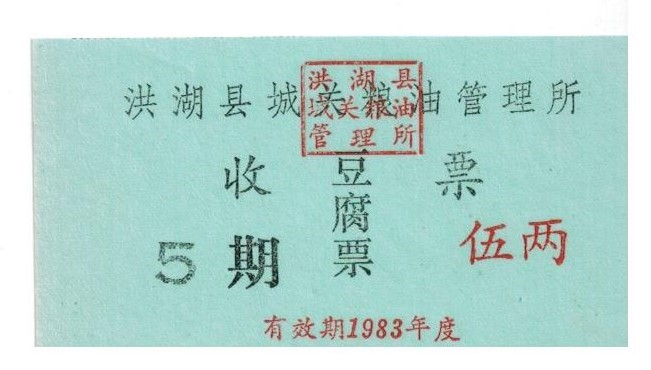 洪湖县城关粮油管理所
洪湖县
城关粮油
管理所
收 票
豆腐票
5期
伍两
有效期1983年度